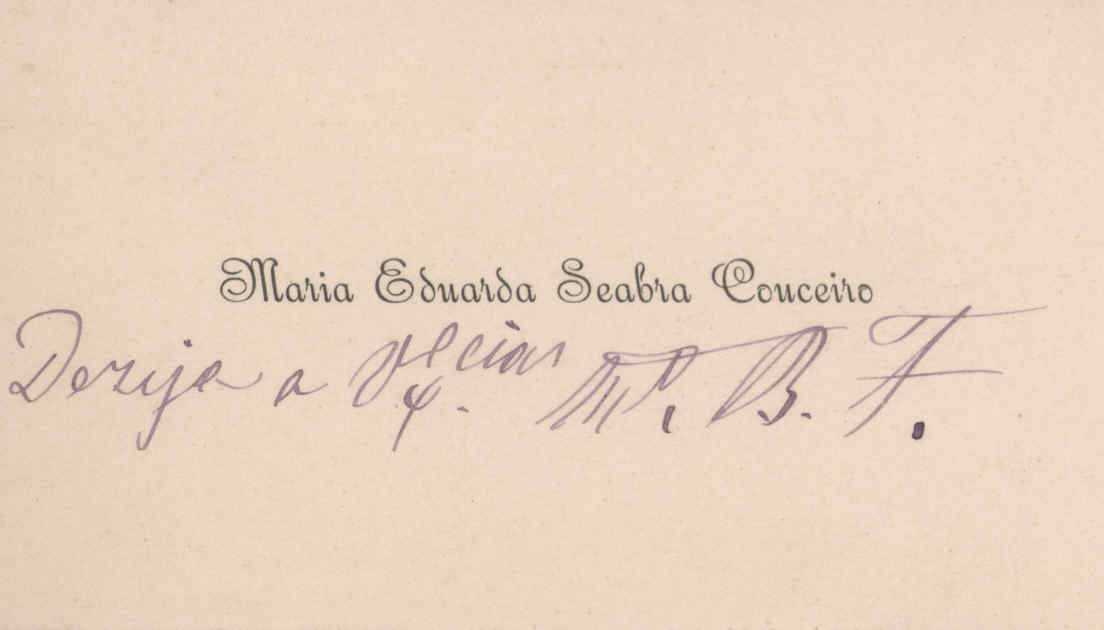 Maria Eduarda Seabra Couceiro
Dezija a V. Ex.cias M. B. F.